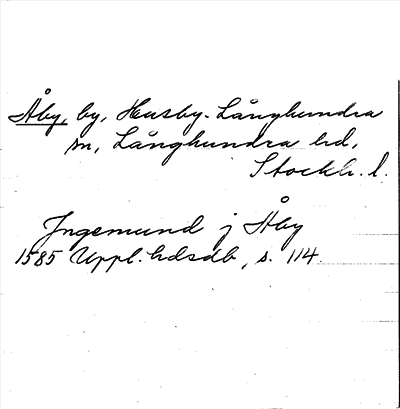 Åby, by, Husby-Långhundra
sn, Långhundra hd,
Stockh. l.
Jngemund j Åby
1585 Uppl. hdsdb, s. 114